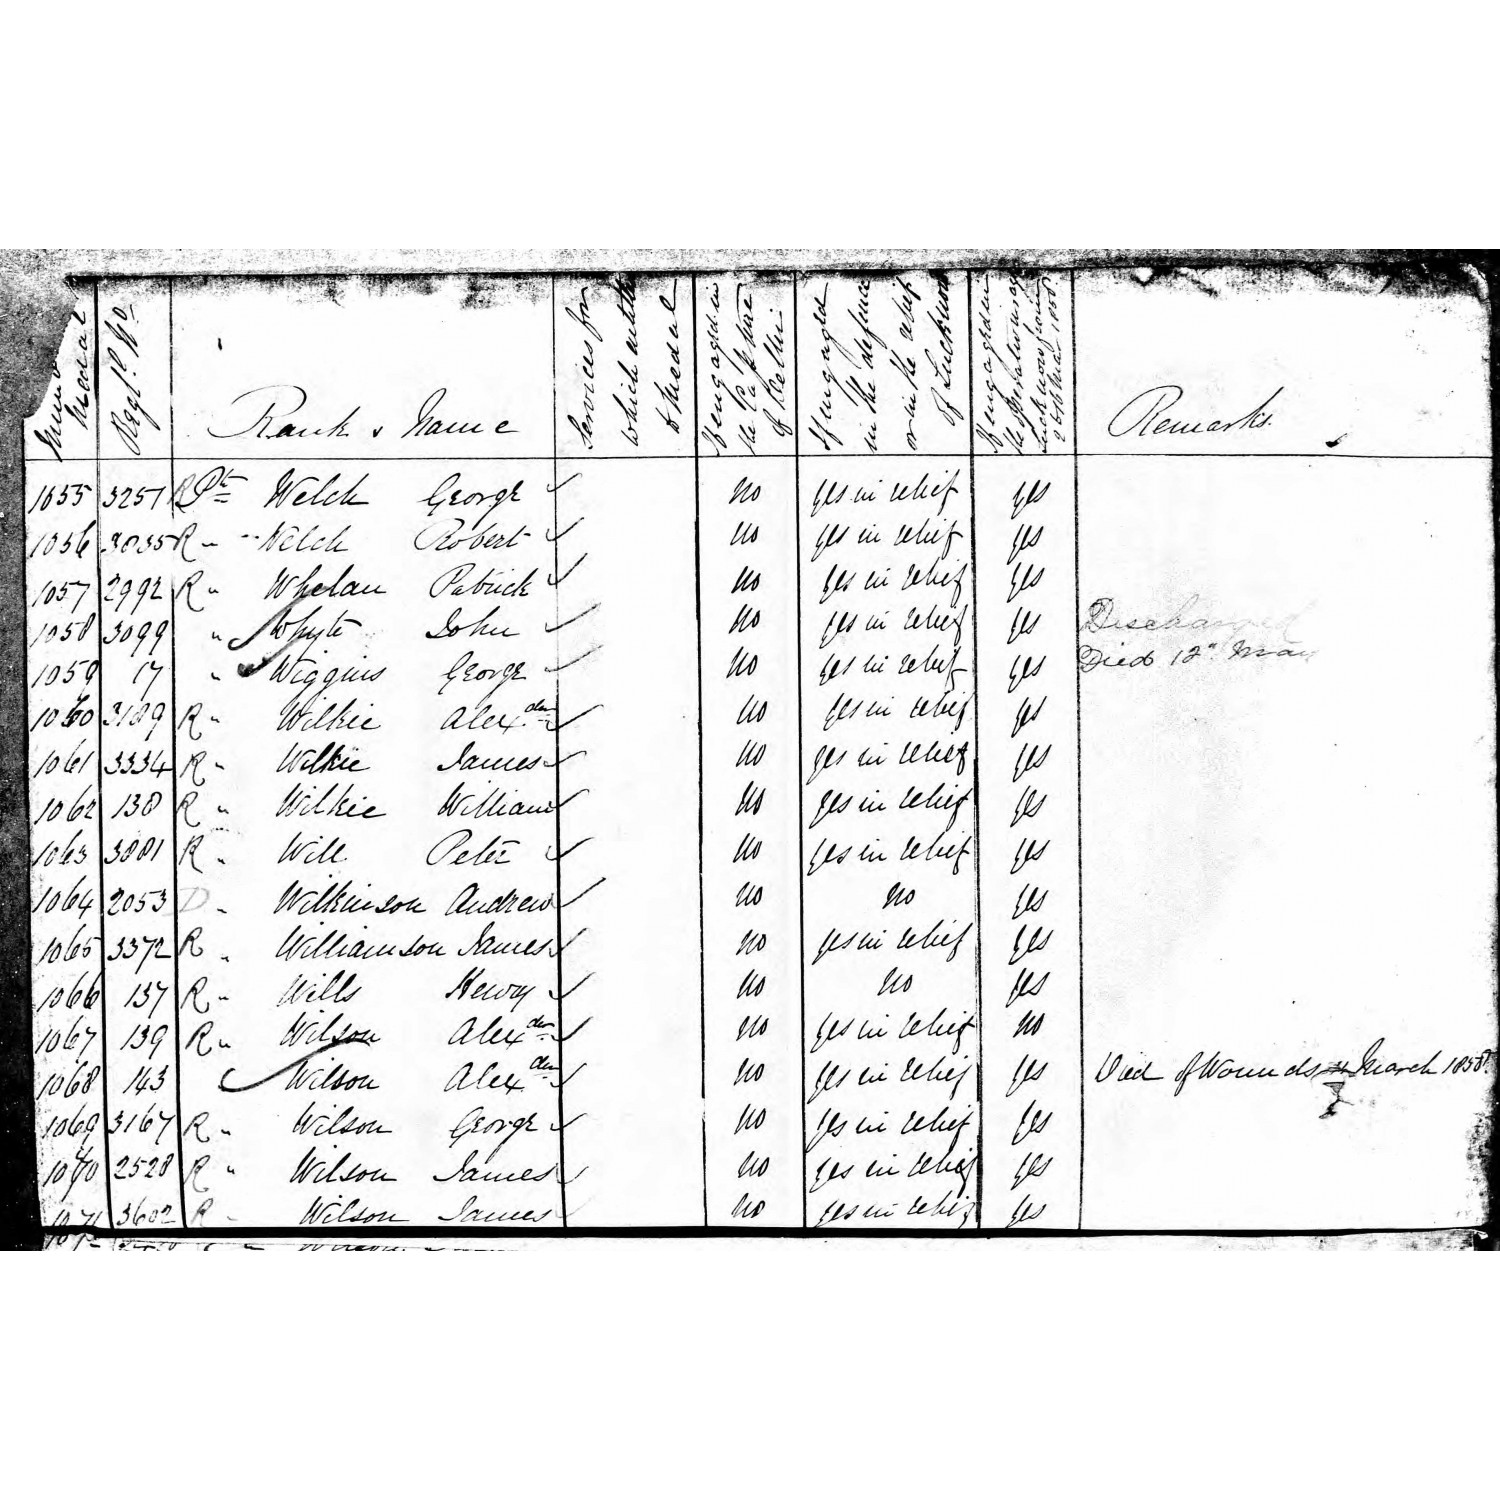 Medal
Regtl. No.
Rank & Name
Services for which entitled to Medal
If engaged in the Capture of Delhi
If engaged in the defence or in the relief of Lucknow
If engaged in the Operations
Remarks.
1055 3257 R Pte Welch George ✓ no yes in relief yes
1056 3035 R " Welch Robert ✓ no yes in relief yes
1057 2992 R " Whelan Patrick ✓ no yes in relief yes
1058 3099 " Whyte John ✓ no yes in relief yes Discharged
1059 17 " Wiggins George ✓ no yes in relief yes Died 12"
1060 3189 R " Wilkie Alexder ✓ no yes in relief yes
1061 3334 R " Wilkie James ✓ no yes in relief yes
1062 138 R " Wilkie William ✓ no yes in relief yes
1063 3881 R " Will Peter ✓ no yes in relief yes
1064 2053 D " Wilkinson Andrew ✓ no no yes
1065 3372 R " Williamson James ✓ no yes in relief yes
1066 137 R " Wills Henry ✓ no no yes
1067 139 R " Wilson Alexder ✓ no yes in relief no
1068 143 Wilson Alexder ✓ no yes in relief yes Died of Wounds March 1858
1069 3167 R " Wilson George ✓ no yes in relief yes
1070 2528 R " Wilson James ✓ no yes in relief yes
1071 3602 R " Wilson James ✓ no yes in relief yes